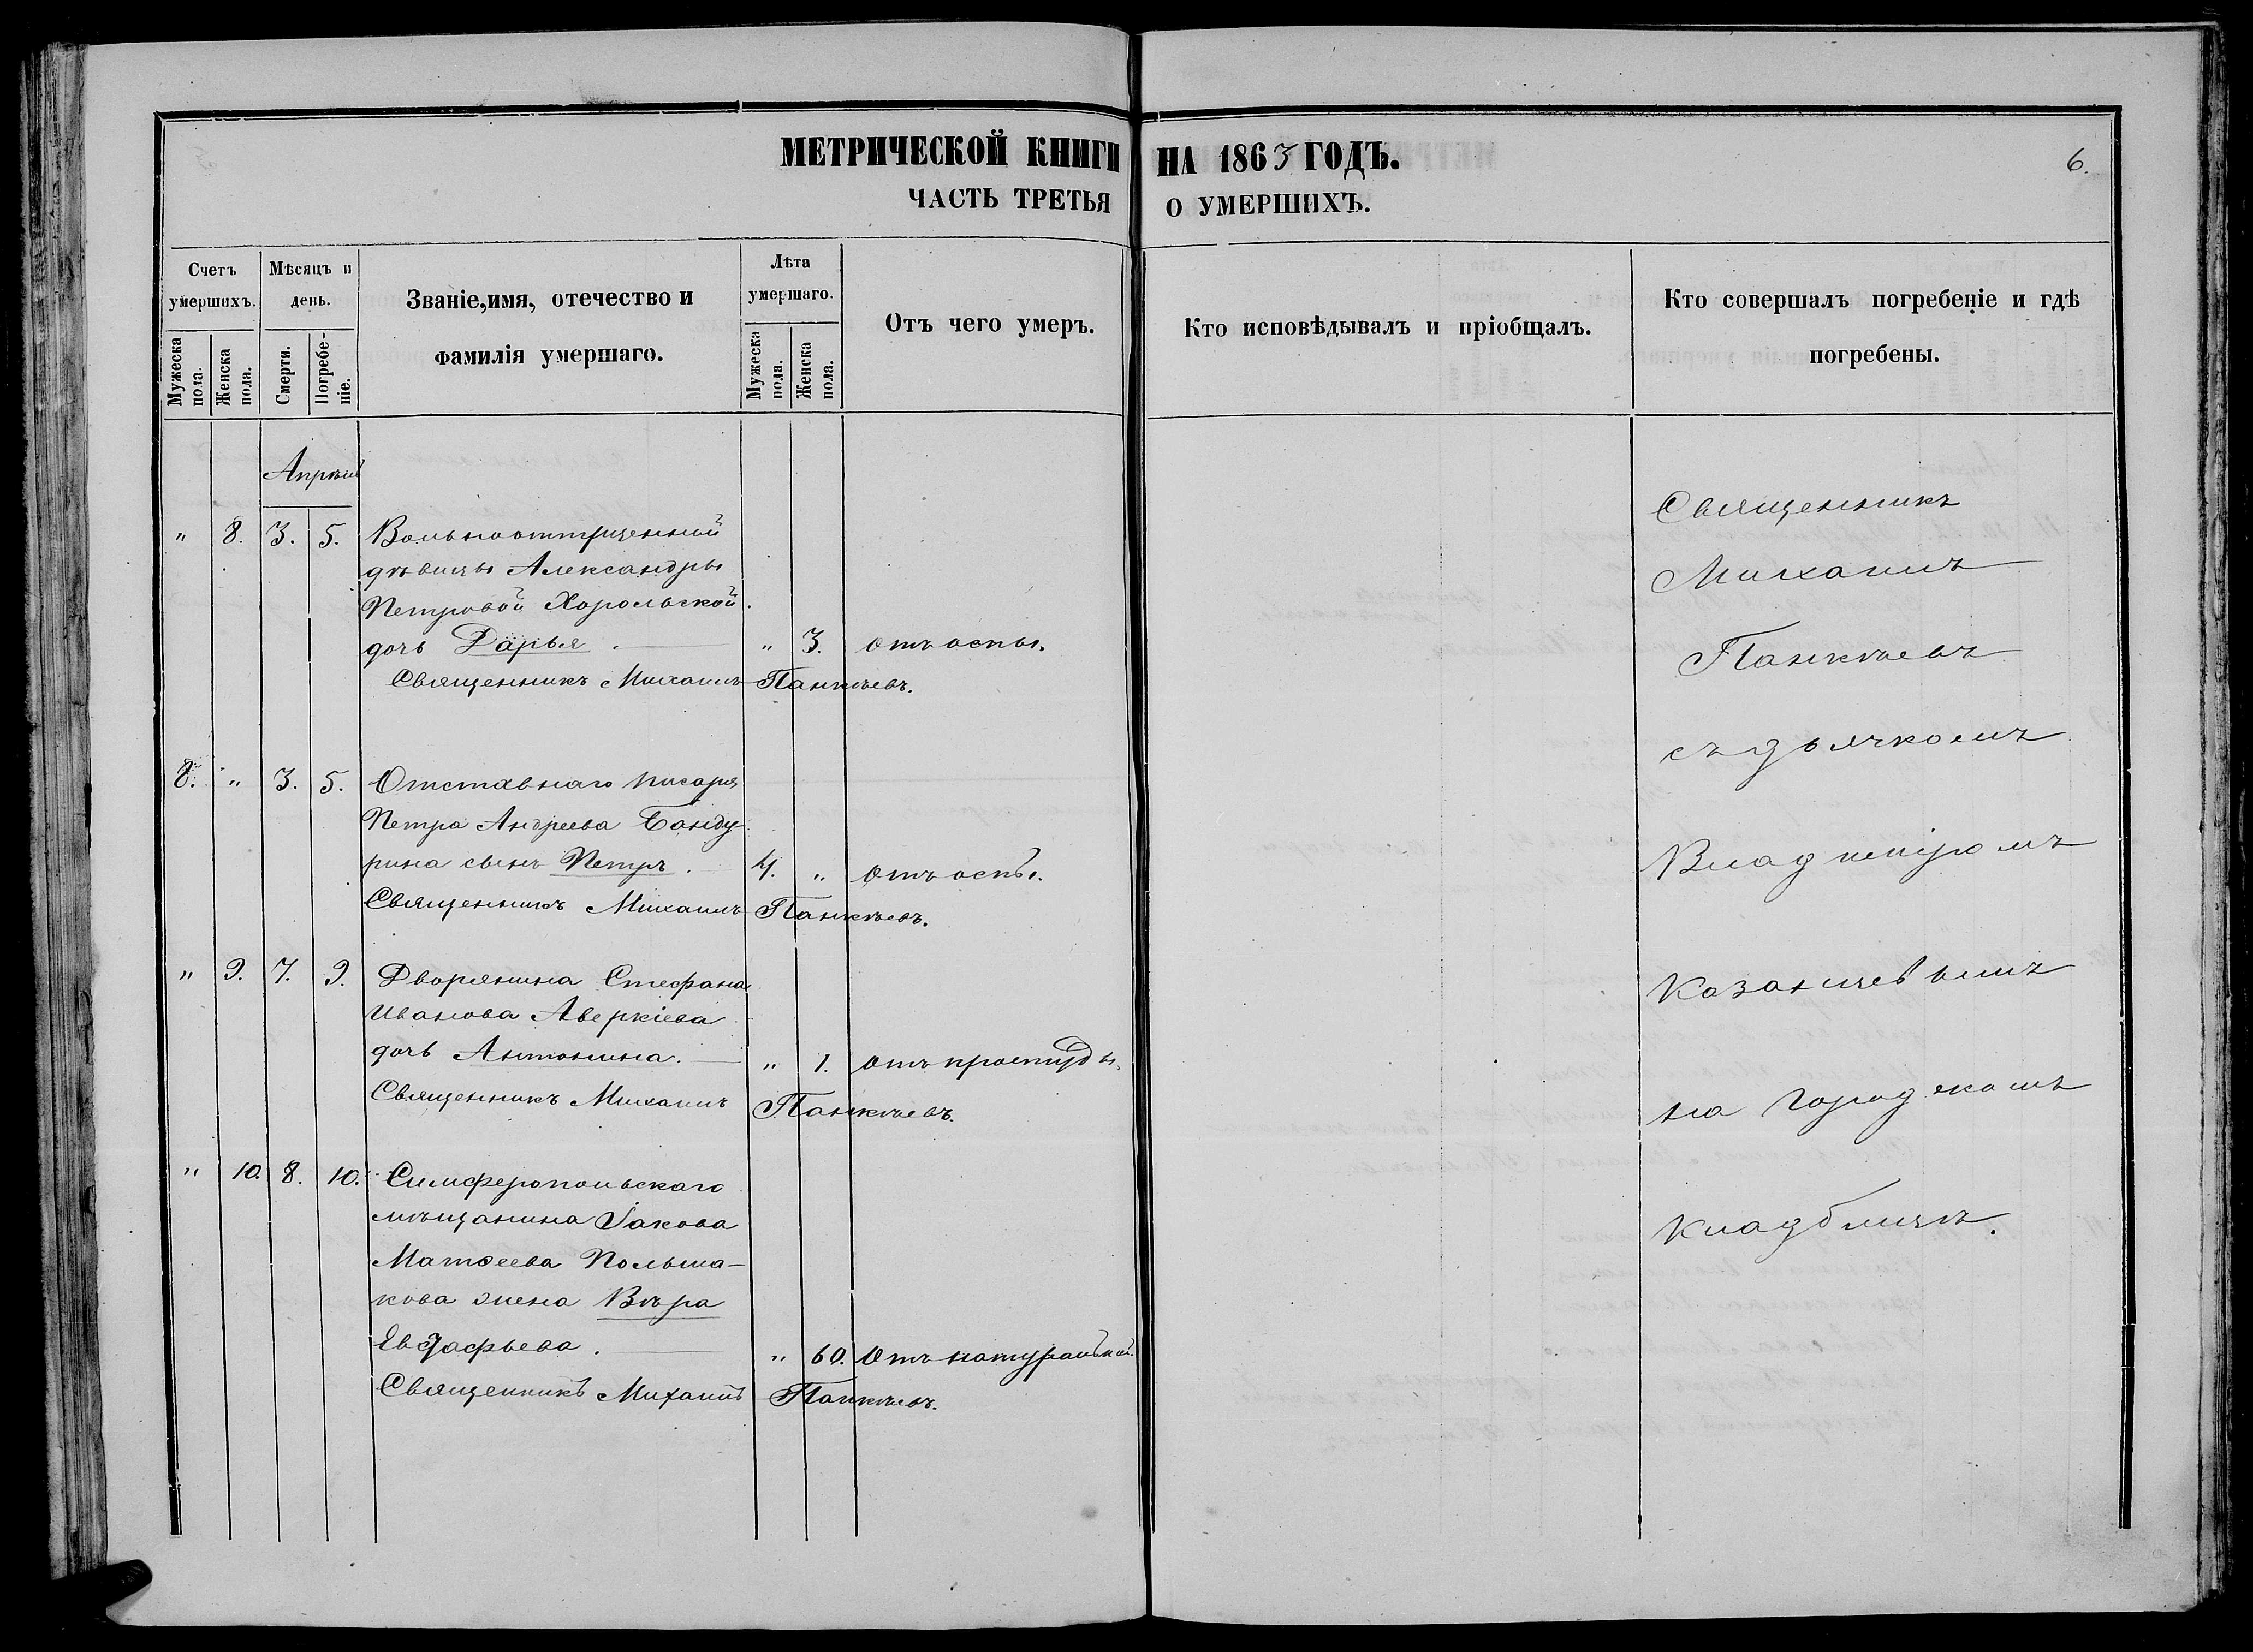 МЕТРИЧЕСКОЙ КНИГИ НА 1863 ГОДЪ.
6.
ЧАСТЬ ТРЕТЬЯ О УМЕРШИХЪ.
Счетъ умершихъ.
Мужеска пола.
Женска пола.
Мѣсяцъ и день.
Смерти.
Погребеніе.
Званіе, имя, отечество и фамилія умершаго.
Лѣта умершаго.
Мужеска пола.
Женска пола.
Отъ чего умеръ.
Кто исповѣдывалъ и пріобщалъ.
Кто совершалъ погребеніе и гдѣ погребены.
Апрѣль
" 8. 3. 5. Вольноотпущенной
дѣвицы Александры
Петровой Хорольской
дочь Дарья " 3. отъ оспы.
Священникъ Михаилъ Панкѣевъ.
8. " 3. 5. Отставнаго писаря
Петра Андреева Банду-
рина сынъ Петръ. 4. " отъ оспы.
Священникъ Михаилъ Панкѣевъ.
" 9. 7. 9. Дворянина Стефана
Иванова Аверкіева
дочь Антонина. " 1. отъ простуды.
Священникъ Михаилъ Панкѣевъ.
" 10. 8. 10. Симферопольскаго
мѣщанина Іакова
Матѳеева Польша-
кова жена Вѣра
" 60. Отъ натуральной.
Священникъ Михаилъ Панкѣевъ.
Священникъ
Михаилъ
Панкѣевъ
съ дьячкомъ
Владиміромъ
Казанчевымъ
на городскомъ
кладбищѣ.